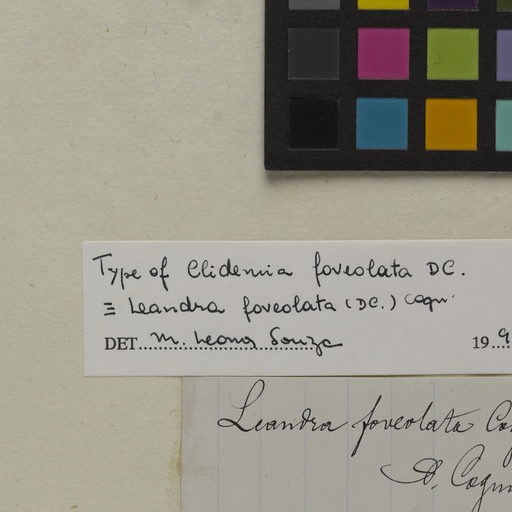 Type of Clidemia foveolata DC.
≡ Leandra foveolata (DC.) Cogn.
DET. M. Leona Souza 19 9
Leandra foveolata Co
A. Cogn